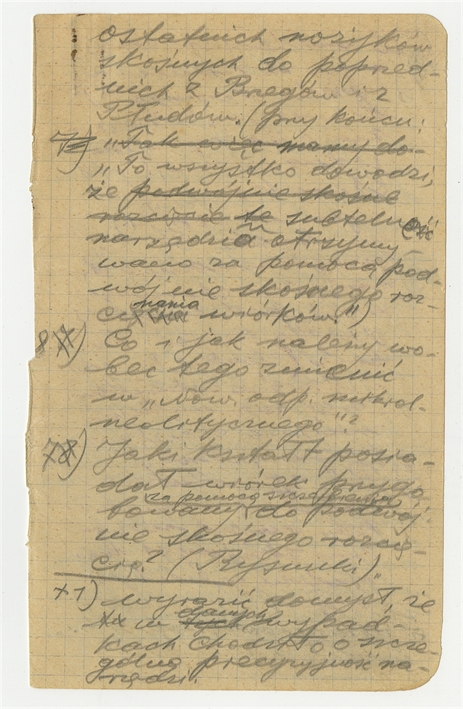 ostatnich nożyków
skośnych do poprzed-
nich z Brzegów i z
Płudów. (przy końcu:
7) „Tak więc mamy do-
„To wszystko dowodzi,
że podwójnie skośne
rozcięcie te subtelność
narzędzia otrzymy-
wano za pomocą pod-
wójnie skośnego roz-
cinania wiórków.")
87) Co i jak należy wo-
bec tego zmienić
w „Now. odp. mikrol-
neolitycznego"?
78) Jaki kształt posia-
dał wiórek przygo
za pomocą
bowany do podwój-
nie skośnego rozcię-
cia? (Rysunki).
+1) wyrazić domysł, że
w danych wypad-
kach chodziło o szcze-
gólną precyzyjność na-
rzędzi.